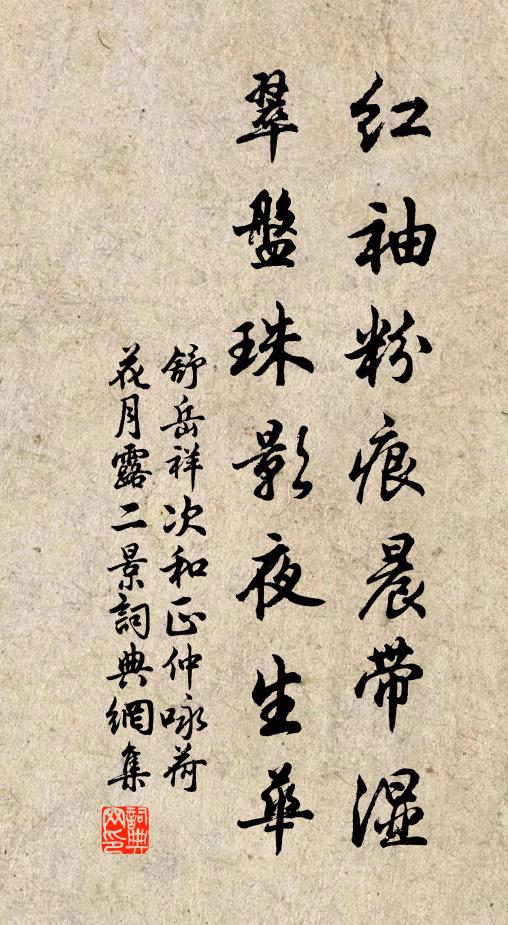 红袖粉痕晨带湿
翠盤珠影夜生華
舒岳祥次和正仲咏荷
花月露二景詞典網集
詞典网印